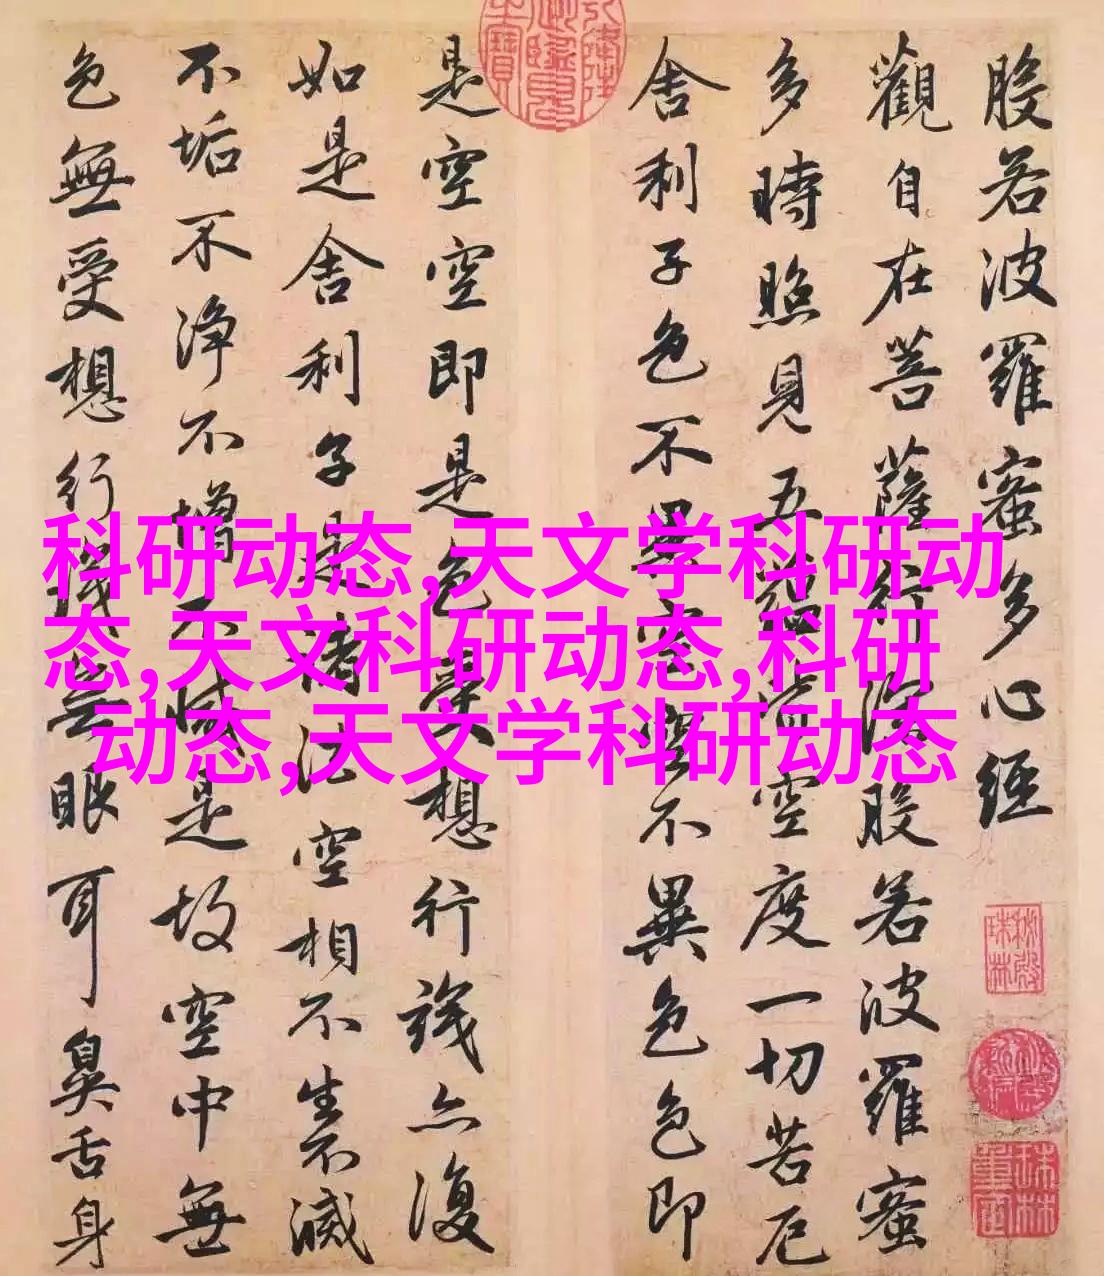 般若波羅蜜多心經
觀自在菩薩行深般若波羅蜜
多時照見五蘊皆空度一切苦厄
舍利子色不異空空不異色色即
是空空即是色受想行識亦復
如是舍利子是諸法空相不生不滅
不垢不淨不增不減是故空中無
色無受想行識无眼耳鼻舌身
秘殿
珠林
科研动态,天文学科研动
态,天文科研动态,科研
动态,天文学科研动态